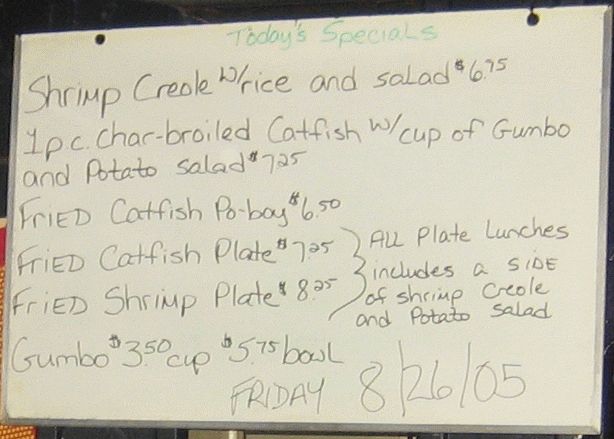 Today's Specials
Shrimp Creole w/rice and salad $6.75
1 p.c. Char-broiled Catfish w/cup of Gumbo
and Potato salad $7.25
FriED Catfish Po-boy $6.50
FriED Catfish Plate $7.25
FriED Shrimp Plate $8.25
ALL Plate Lunches
includes a SIDE
of shrimp Creole
and Potato Salad
Gumbo $3.50 cup $5.75 bowl
FRIDAY 8/26/05